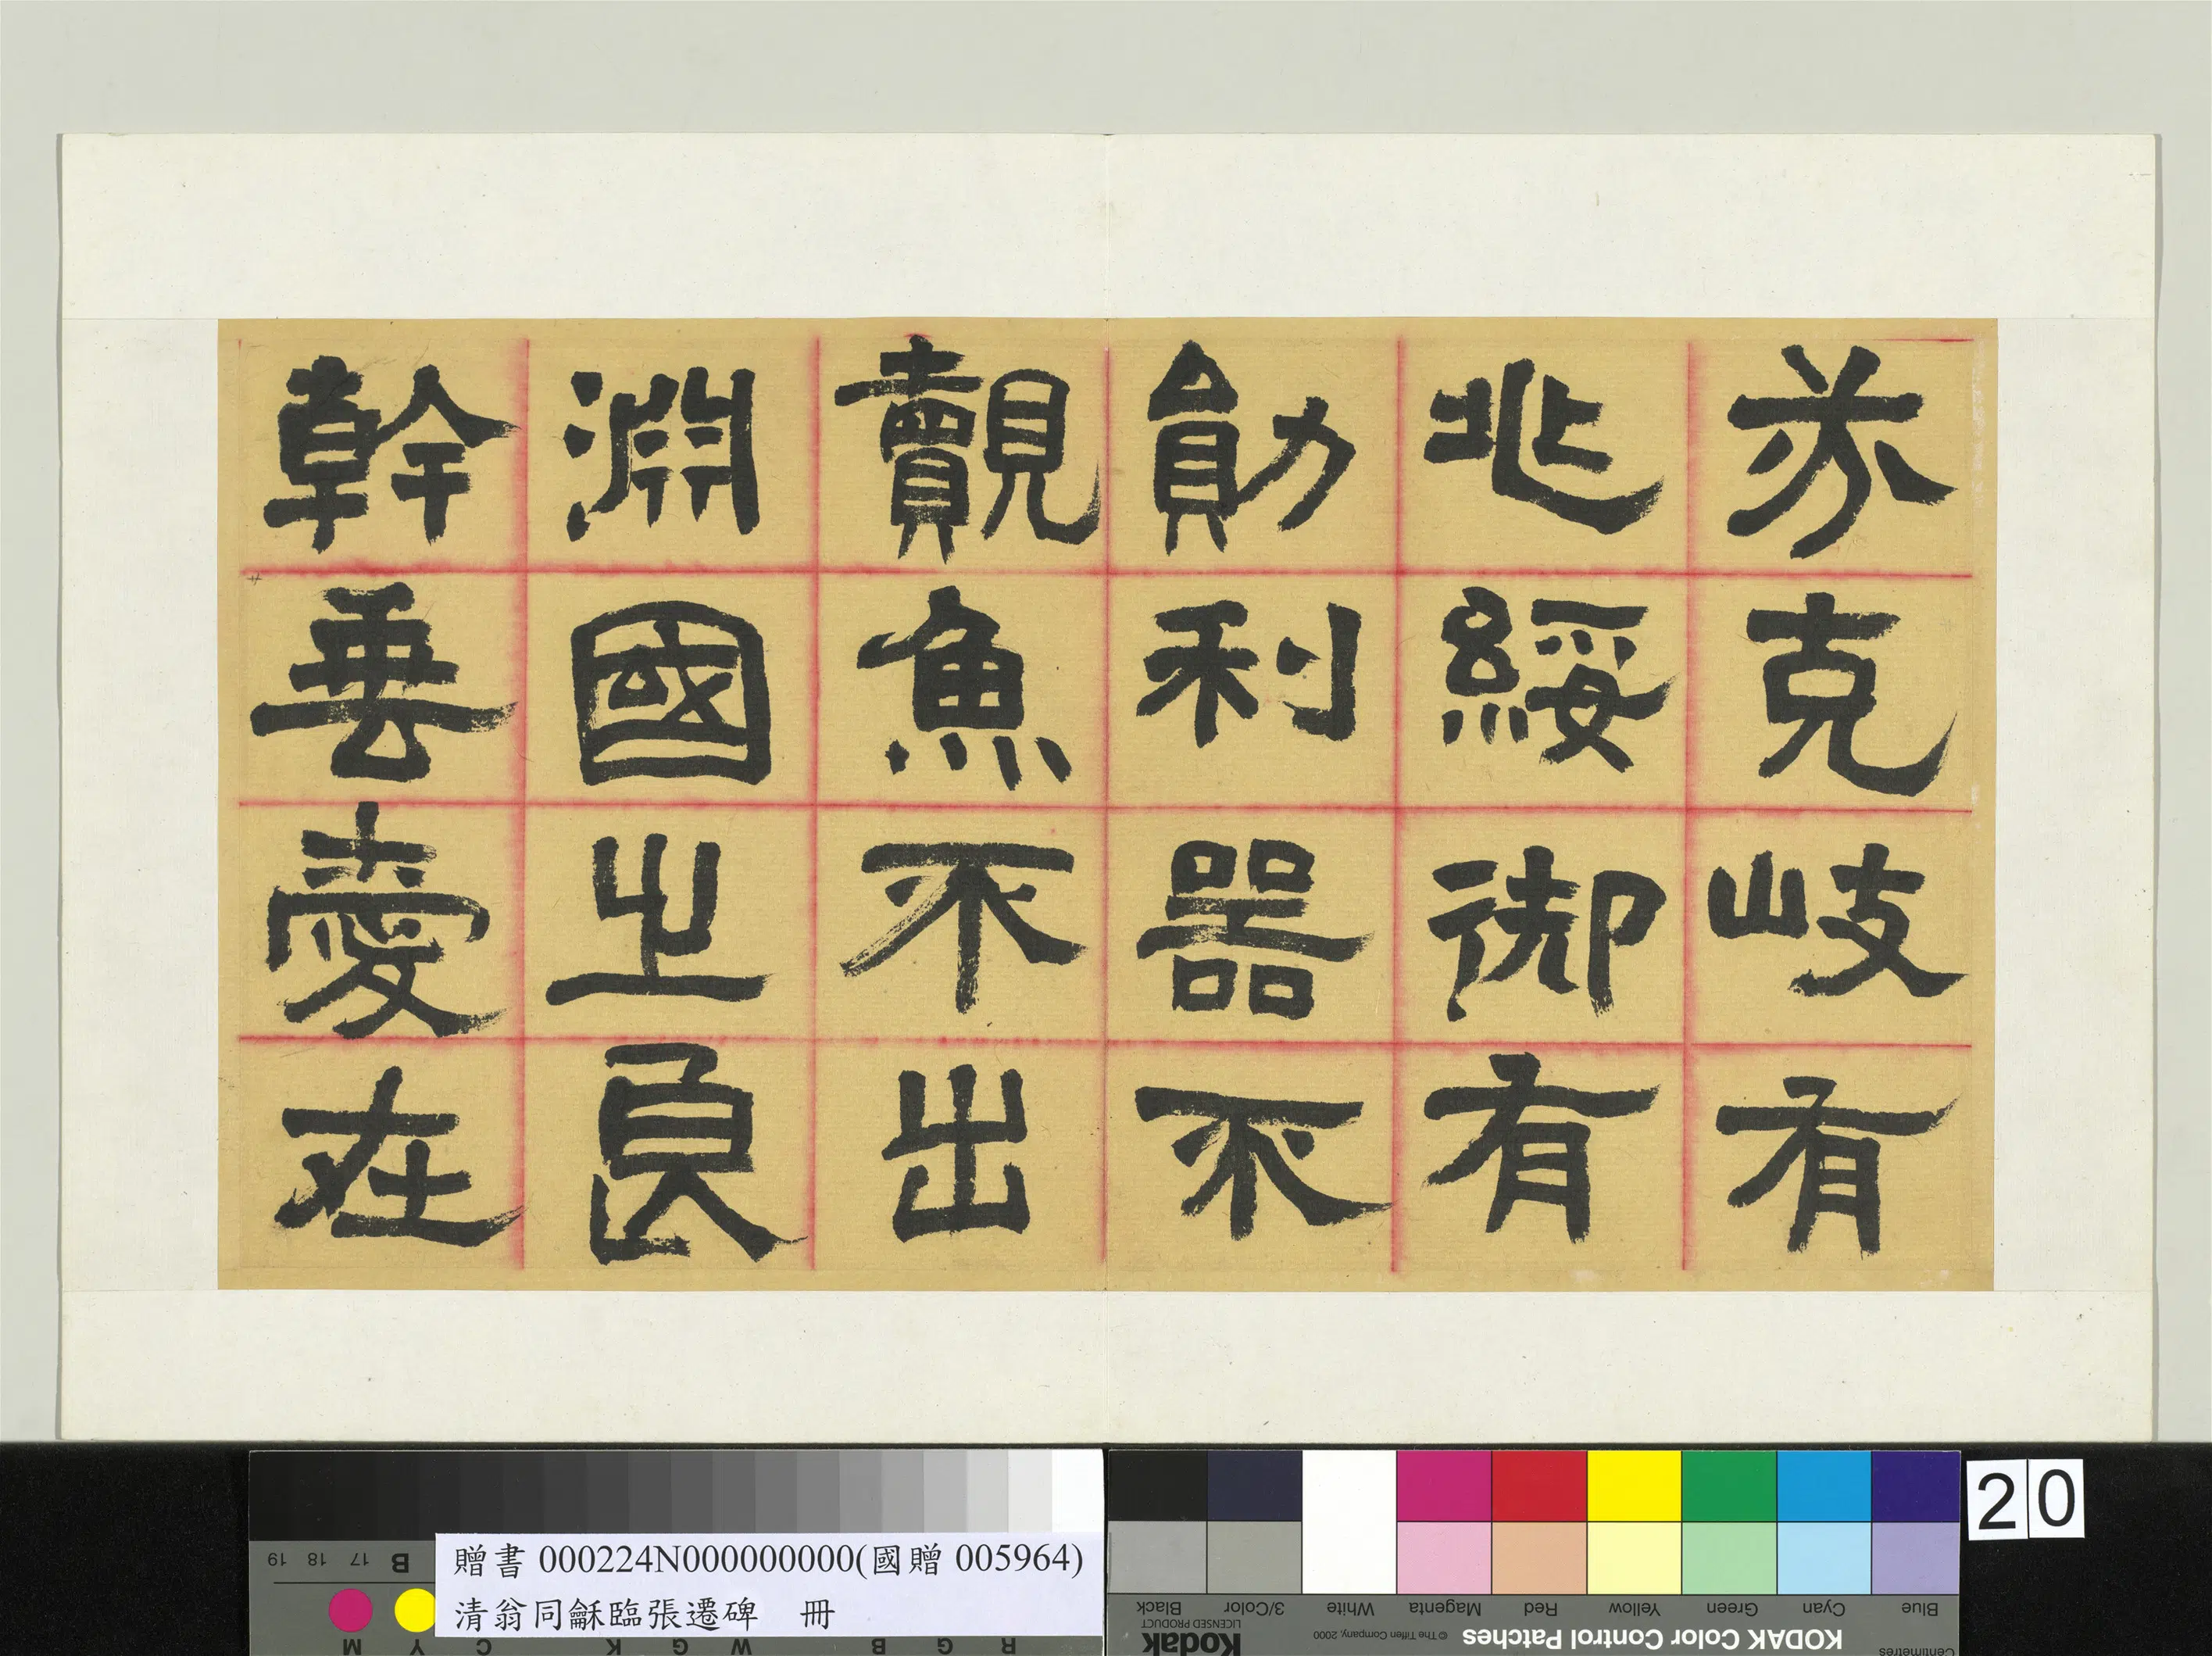 芬克岐有
兆綏御有
勛利器不
覿魚不出
淵國之良
幹垂愛在
20
贈書 000224N000000000(國贈 005964)
清翁同龢臨張遷碑 冊
KODAK Color Control Patches
© The Tiffen Company, 2000
Kodak
LICENSED PRODUCT
Centimetres
Blue Cyan Green Yellow Red Magenta White 3/Color Black
R G B W G K C Y M
B 17 18 19